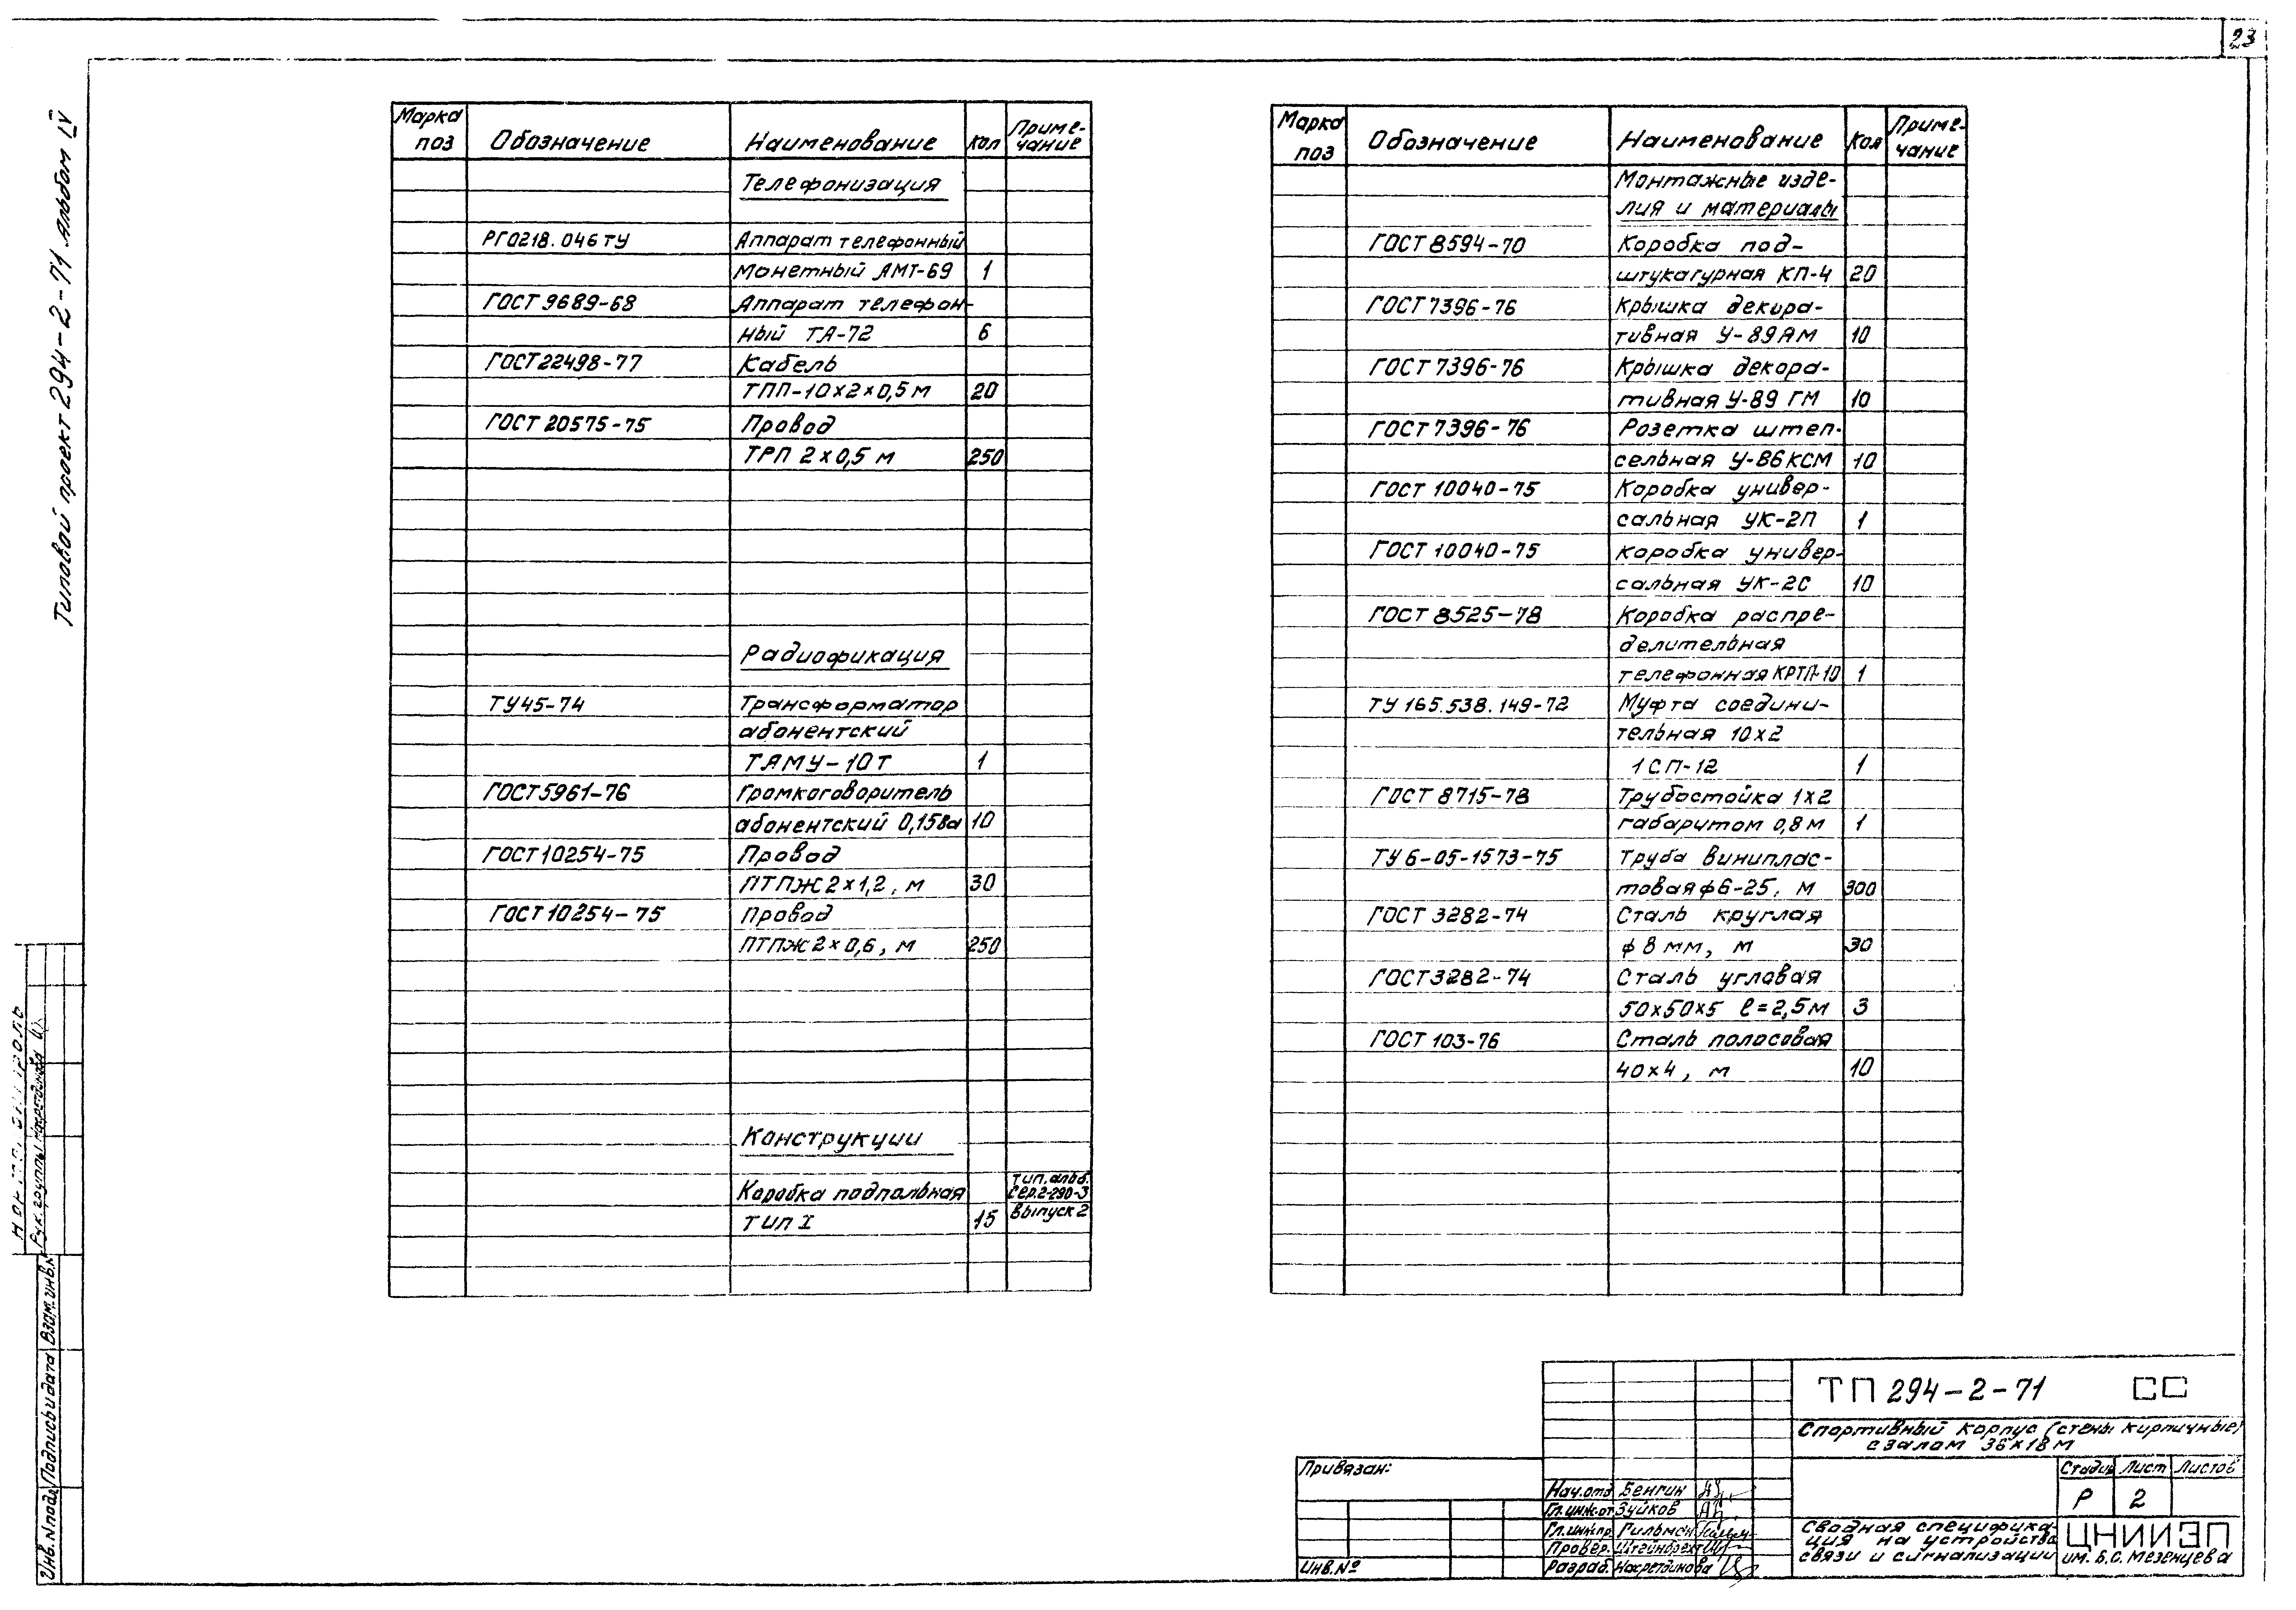 23
Типовой проект 294-2-71 Альбом IV
Марка поз
Обозначение
Наименование
Кол
Приме-
чание
Телефонизация
РГ0218.046ТУ Аппарат телефонный
монетный АМТ-69 1
ГОСТ 9689-68 Аппарат телефон-
ный ТА-72 6
ГОСТ 22498-77 Кабель
ТПП-10х2х0,5 м 20
ГОСТ 20575-75 Провод
ТРП 2х0,5 м 250
Радиофикация
ТУ45-74 Трансформатор
абонентский
ТАМУ-10Т 1
ГОСТ 5961-76 Громкоговоритель
абонентский 0,15ва 10
ГОСТ 10254-75 Провод
ПТПЖ 2х1,2, м 30
ГОСТ 10254-75 Провод
ПТПЖ 2х0,6, м 250
Конструкции
Коробка подпольная тип.альб. сер.2-290-3
тип I 15 выпуск 2
Марка поз
Обозначение
Наименование
Кол
Приме-
чание
Монтажные изде-
лия и материалы
ГОСТ 8594-70 Коробка под-
штукатурная КП-4 20
ГОСТ 7396-76 Крышка декора-
тивная У-89АМ 10
ГОСТ 7396-76 Крышка декора-
тивная У-89 ГМ 10
ГОСТ 7396-76 Розетка штеп-
сельная У-86КСМ 10
ГОСТ 10040-75 Коробка универ-
сальная УК-2П 1
ГОСТ 10040-75 Коробка универ-
сальная УК-2С 10
ГОСТ 8525-78 Коробка распре-
делительная
телефонная КРТП-10 1
ТУ 165.538.149-72 Муфта соедини-
тельная 10х2
1СП-12 1
ГОСТ 8715-78 Трубостойка 1х2
габаритом 0,8 м 1
ТУ 6-05-1573-75 Труба виниплас-
товая ф6-25, м 300
ГОСТ 3282-74 Сталь круглая
ф 8 мм, м 30
ГОСТ 3282-74 Сталь угловая
50х50х5 ℓ=2,5м 3
ГОСТ 103-76 Сталь полосовая
40х4, м 10
Рук. группы
Взам.инв.
Подпись и дата
Инв.N подл
Привязан:
Инв.№
Нач.отд Бенгин
Гл.инж.от Зуйков
Гл.инж.пр. Гильман
Провер. Штейнбрехт
Разраб. Насретдинова
ТП 294-2-71 СС
Спортивный корпус (стены кирпичные)
с залом 36х18 м
Стадия Лист Листов
Р 2
Сводная специфика-
ция на устройства
связи и сигнализации
ЦНИИЭП
им. Б.С. Мезенцева